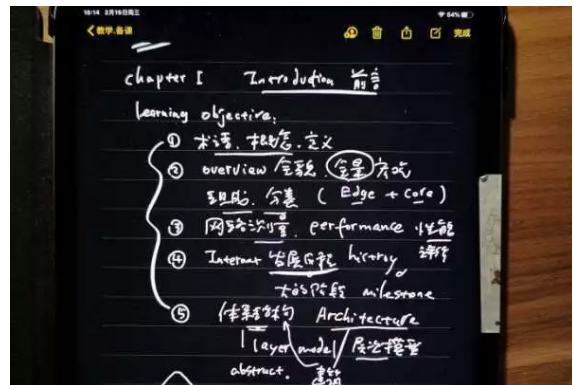 18:14 3月18日周三
54%
教学.备课
完成
chapter I Introduction 前言
Learning objective:
① 术语、概念、定义
② overview 全貌、全景
组成、分类 ( Edge + Core )
③ 网络测量、performance 性能
④ Internet 发展历程 histroy
大的阶段 milestone
⑤ 体系结构 Architecture
layer model 层次模型
abstract.